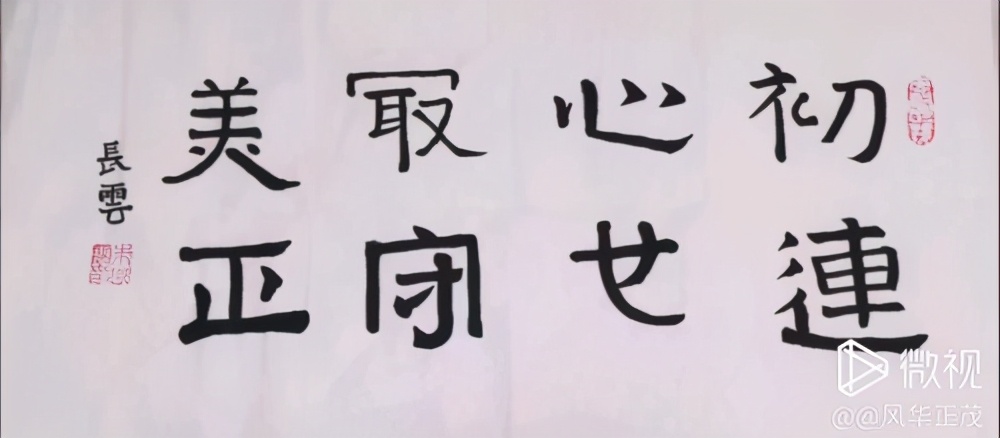 初心冣美
連守正
長雲
微视
@@风华正茂